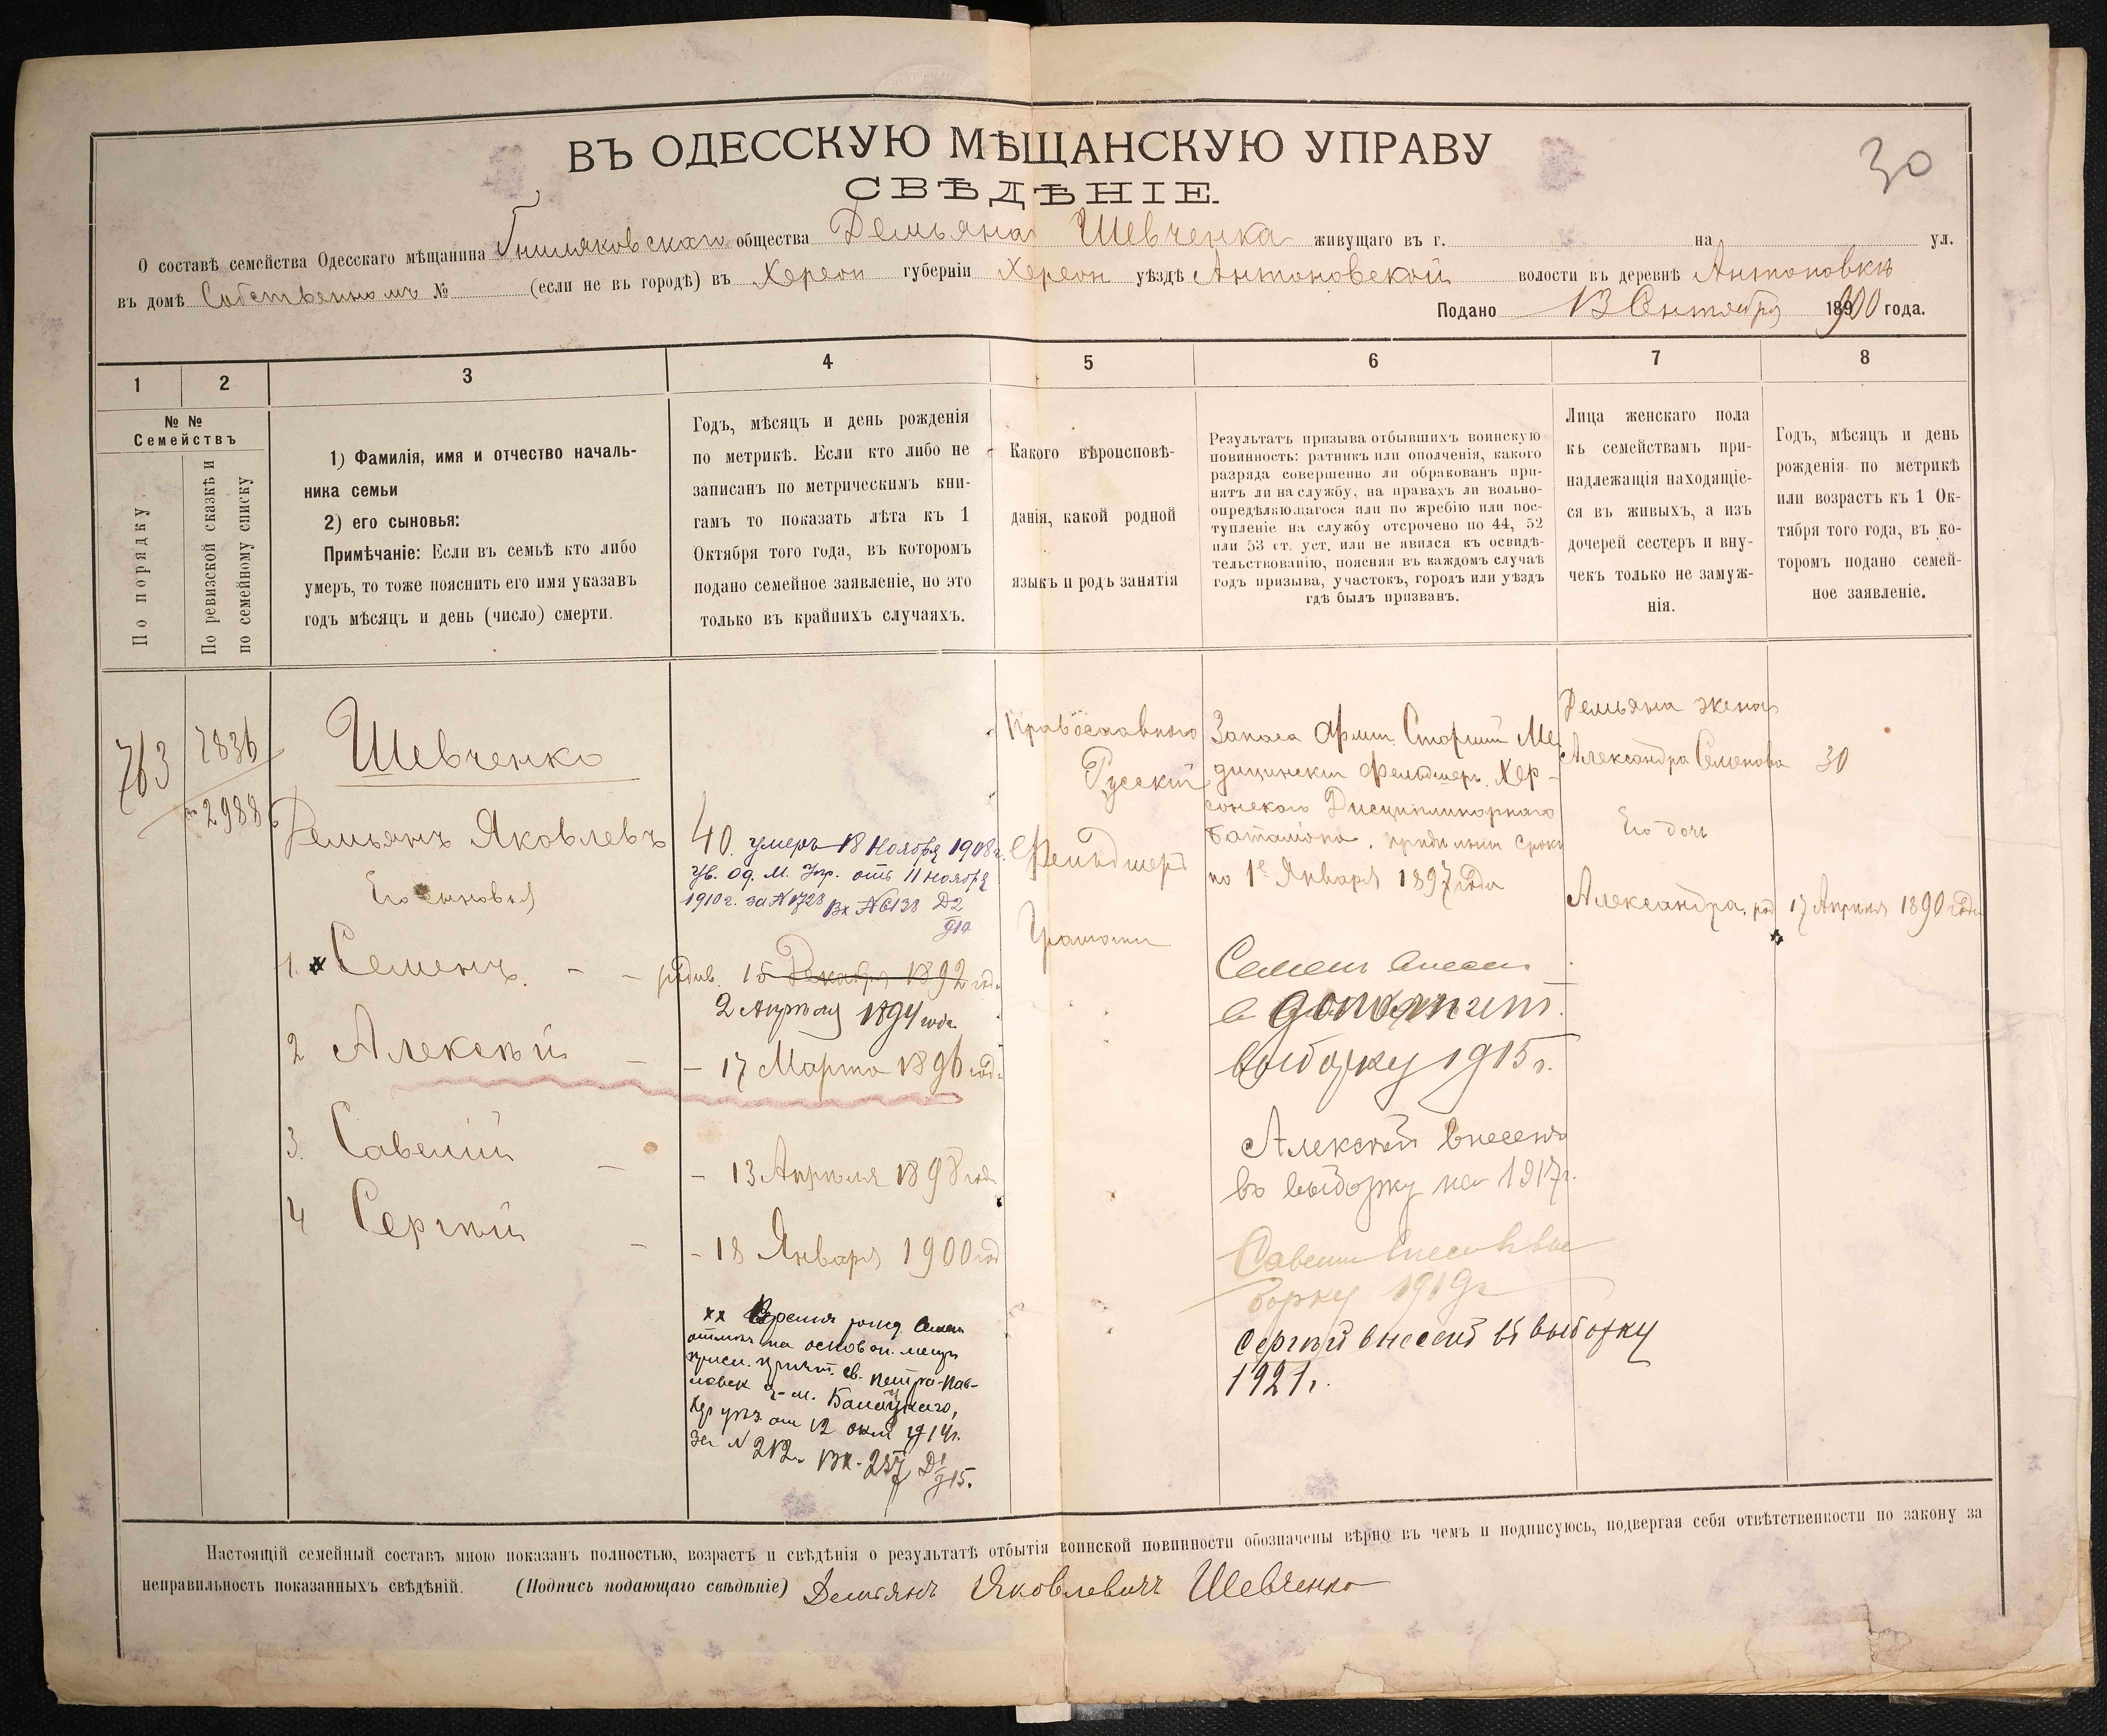 30
ВЪ ОДЕССКУЮ МѢЩАНСКУЮ УПРАВУ
СВѢДѢНІЕ.
О составѣ семейства Одесскаго мѣщанина Гниляковскаго общества Демьяна Шевченка живущаго въ г. на ул.
въ домѣ Собственномъ № (если не въ городѣ) въ Херсон губерніи Херсон уѣздѣ Антоновской волости въ деревнѣ Антоновкѣ
Подано 13 Сентября 1900 года.
1 2 3 4 5 6 7 8
№ №
Семействъ
По порядку.
По ревизской сказкѣ и
по семейному списку
1) Фамилія, имя и отчество началь-
ника семьи
2) его сыновья:
Примѣчаніе: Если въ семьѣ кто либо
умеръ, то тоже пояснить его имя указавъ
годъ мѣсяцъ и день (число) смерти.
Годъ, мѣсяцъ и день рожденія
по метрикѣ. Если кто либо не
записанъ по метрическимъ кни-
гамъ то показать лѣта къ 1
Октября того года, въ которомъ
подано семейное заявленіе, но это
только въ крайнихъ случаяхъ.
Какого вѣроисповѣ-
данія, какой родной
языкъ и родъ занятія
Результатъ призыва отбывшихъ воинскую
повинность: ратникъ или ополченія, какого
разряда совершенно ли обракованъ при-
нятъ ли на службу, на правахъ ли вольно-
опредѣляющагося или по жребію или пос-
тупленіе на службу отсрочено по 44, 52
или 53 ст. уст. или не явился къ освидѣ-
тельствованію, поясняя въ каждомъ случаѣ
годъ призыва, участокъ, городъ или уѣздъ
гдѣ былъ призванъ.
Лица женскаго пола
къ семействамъ при-
надлежащія находящіе-
ся въ живыхъ, а изъ
дочерей сестеръ и вну-
чекъ только не замуж-
нія.
Годъ, мѣсяцъ и день
рожденія по метрикѣ
или возрастъ къ 1 Ок-
тября того года, въ ко-
торомъ подано семей-
ное заявленіе.
763
2836
2988
Шевченко
Демьянъ Яковлевъ
Его сыновья
1. Семенъ
2 Алексѣй
3. Савелій
4 Сергѣй
40. умеръ 18 Ноября 1908 г.
Ув. Од. М. Упр. отъ 11 ноября
1910 г. за № 1728 Вх № 6138 Д2
910
15 Декабря 1892 года
2 Апрѣля 1894 года
17 Марта 1896 года
13 Апрѣля 1898 года
18 Января 1900 год
хх Время рожд. Семен
на основан. метр
св. Петро-Пав-
ловск
от 12 окт 1914 г.
за № 212. Вх. 257 Д1
915.
Православнаго
Русскій
Фельдшеръ
Грамотн
Запаса Арміи Старшій Ме-
дицинскій Фельдшеръ Хер-
сонскаго Дисциплинарнаго
Баталіона, срока
по 1е Января 1897 года
Семенъ внесен
в
выборку 1915 г.
Алексѣй внесенъ
въ выборку на 1917 г.
Савелій внесен в вы
борку 1919 г
Сергѣй внесенъ въ выборку
1921 г.
Демьяна жена
Александра Семенова 30
Его дочь
Александра род 17 Апрѣля 1890 года
Настоящій семейный составъ мною показанъ полностью, возрастъ и свѣдѣнія о результатѣ отбытія воинской повинности обозначены вѣрно въ чемъ и подписуюсь, подвергая себя отвѣтственности по закону за
неправильность показанныхъ свѣдѣній. (Подпись подающаго свѣдѣніе) Демьянъ Яковлевичъ Шевченко